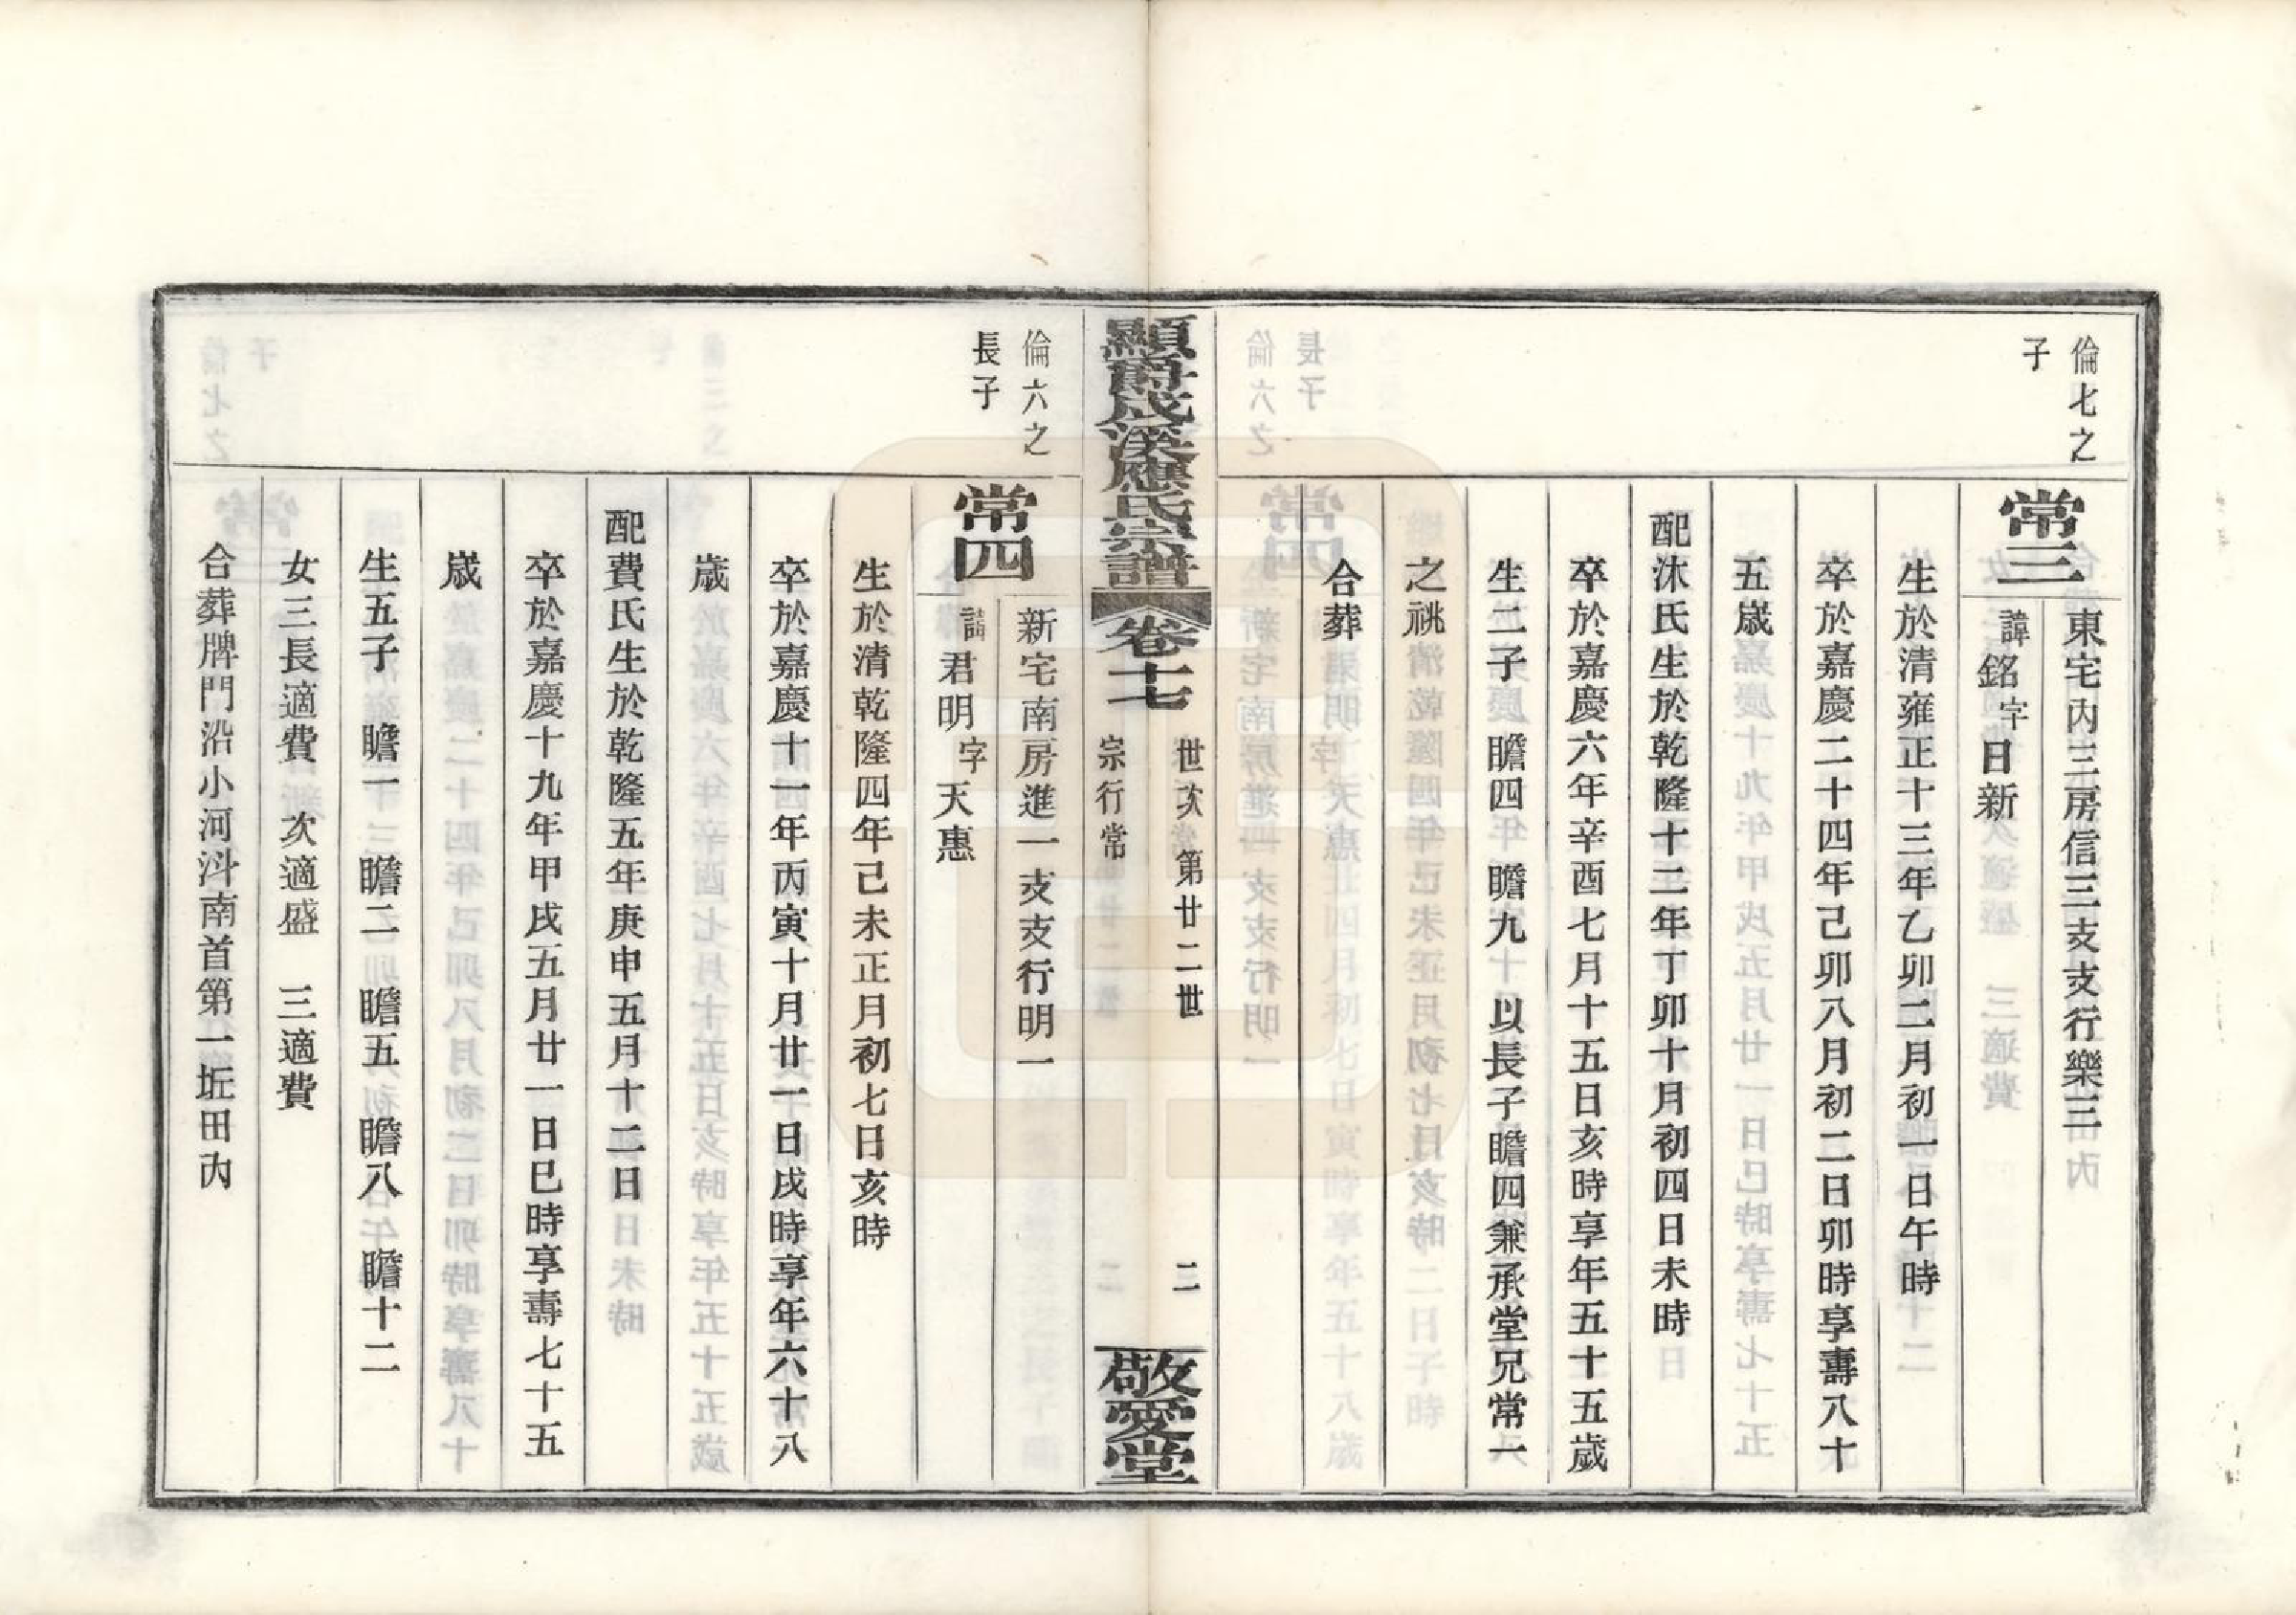 倫七之
子
常三
東宅內三房信三支支行樂三
諱銘字日新
生於清雍正十三年乙卯二月初一日午時
卒於嘉慶二十四年己卯八月初二日卯時享壽八十
五歲
配沐氏生於乾隆十二年丁卯十月初四日未時
卒於嘉慶六年辛酉七月十五日亥時享年五十五歲
生二子 瞻四 瞻九 以長子瞻四兼承堂兄常一
之祧
合葬
顯爵成溪應氏宗譜 卷十七
世次 第廿二世
宗行常
二
敬愛堂
倫六之
長子
常四
新宅南房進一支支行明一
諱君明字天惠
生於清乾隆四年己未正月初七日亥時
卒於嘉慶十一年丙寅十月廿一日戌時享年六十八
歲
配費氏生於乾隆五年庚申五月十二日
卒於嘉慶十九年甲戌五月廿一日巳時享壽七十五
歲
生五子 瞻一 瞻二 瞻五 瞻八 瞻十二
女三長適費 次適盛 三適費
合葬牌門沿小河汌南首第一坵田內